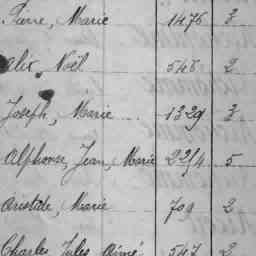 Pierre, Marie 1475 3
Alix, Noël 548 2
Joseph, Marie 1329 3
Alphonse, Jean, Marie 2274 5
Aristide, Marie 709 2
Charles Jules Aimé 547 2